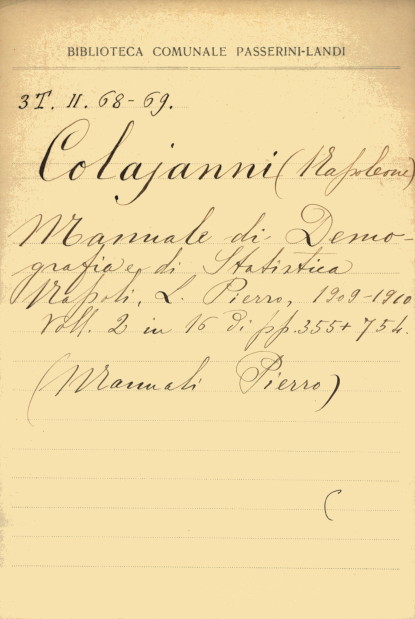 BIBLIOTECA COMUNALE PASSERINI-LANDI
3T. II. 68-69.
Colajanni (Napoleone)
Manuale di Demo-
grafia e di Statistica
Napoli, L. Pierro, 1909-1910
Voll. 2 in 16 di pp. 355+754.
(Manuali Pierro)